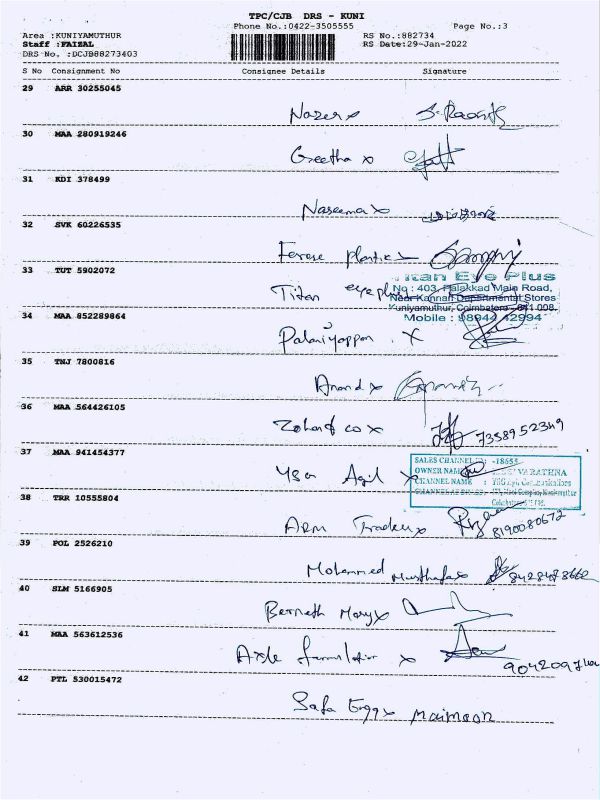 TPC/CJB DRS - KUNI
Phone No.:0422-3505555 Page No.:3
Area :KUNIYAMUTHUR RS No.:882734
Staff :FAIZAL RS Date:29-Jan-2022
DRS No. :DCJB88273403
S No Consignment No Consignee Details Signature
29 ARR 30255045
Nazer x
30 MAA 280919246
Geetha x
31 KDI 378499
Naseema x
32 SVK 60226535
plastics
33 TUT 5902072
Titan eye plus
Titan Eye Plus
No : 403, Palakkad Main Road,
Near Kannan Departmental Stores
Kuniyamuthur, Coimbatore - 641 008.
Mobile : 98944 42994
34 MAA 852289864
Palaniyappan x
35 TNJ 7800816
Anand x
36 MAA 564426105
x 7358952349
37 MAA 941454377
Agil x
SALES CHANNEL ID: -18655
OWNER NAME : VARATHNA
CHANNEL NAME :
38 TRR 10555804
ARM Traders x 8190080672
39 POL 2526210
Mohammed Musthafa x 8428478662
40 SLM 5166905
Mary x
41 MAA 563612536
Axle x
42 PTL 530015472
Safa Engg x Maimoon